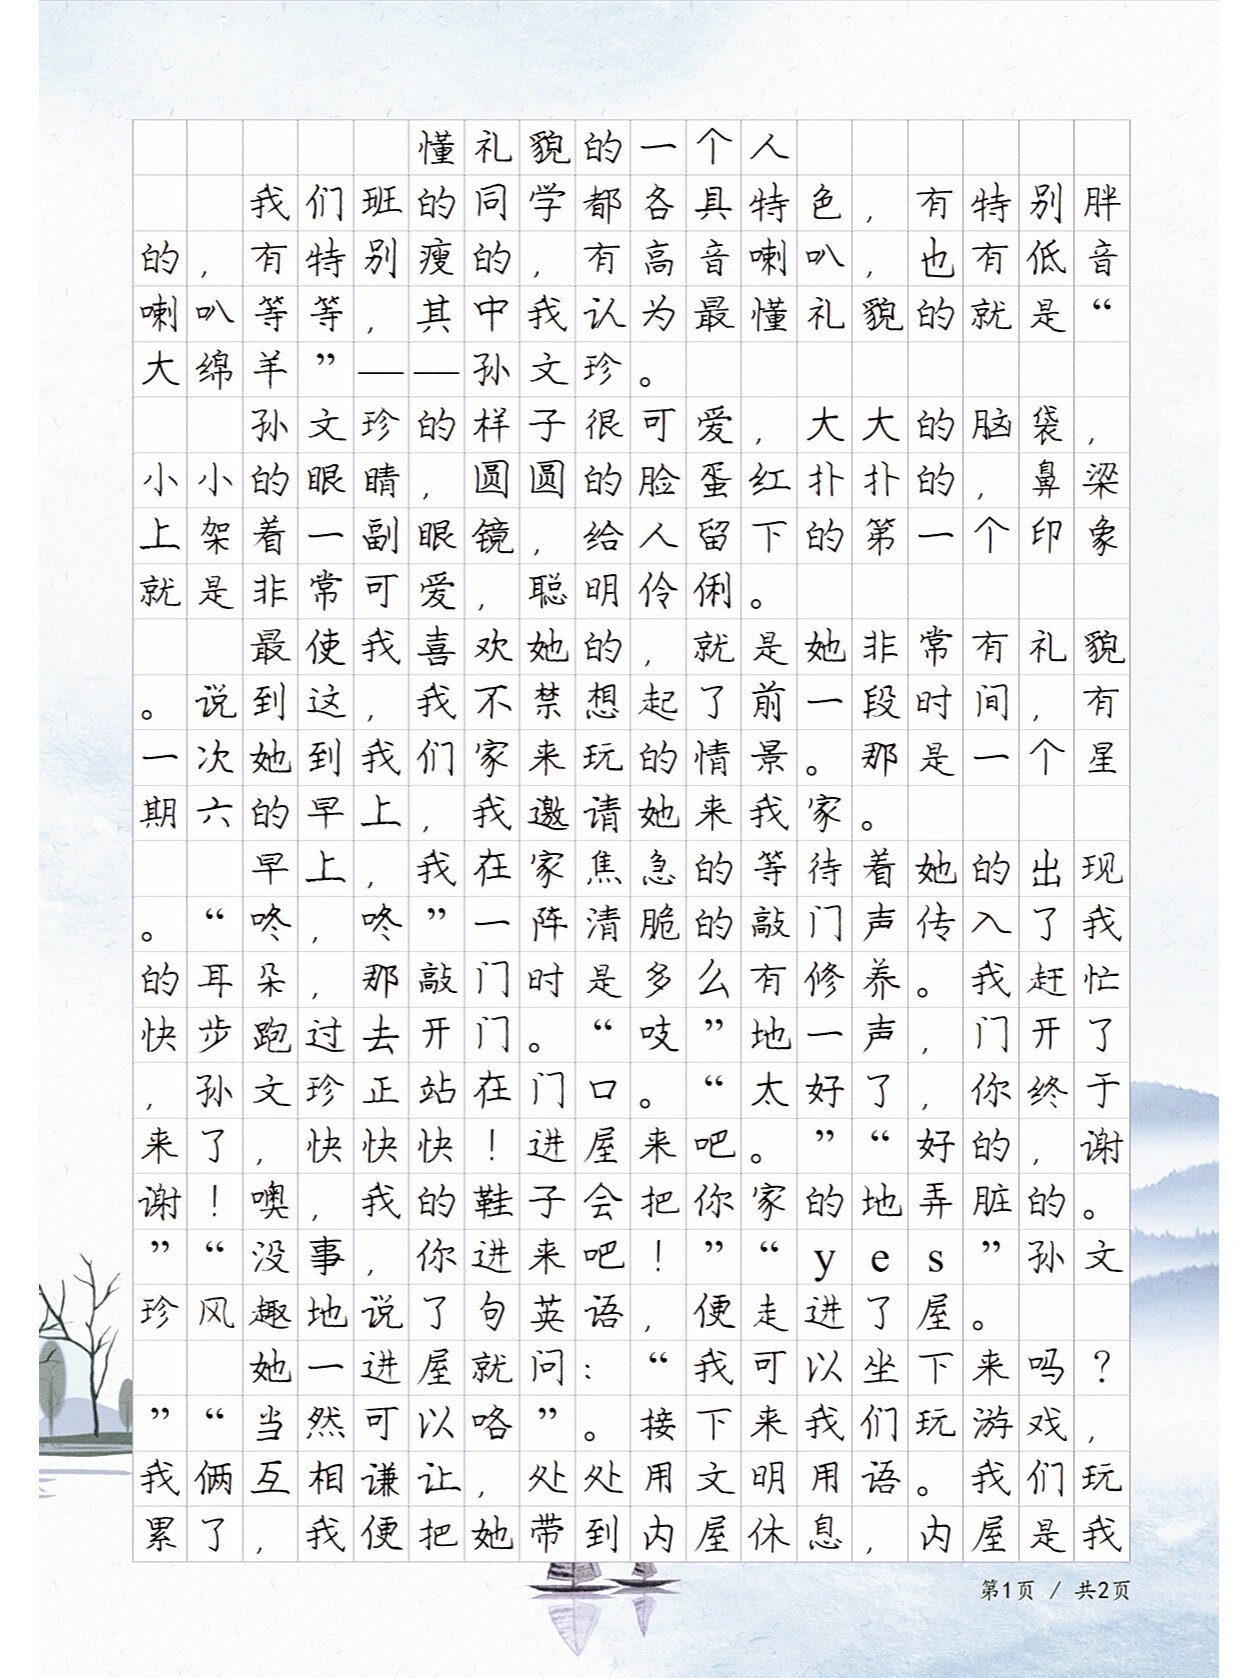 懂礼貌的一个人
我们班的同学都各具特色，有特别胖
的，有特别瘦的，有高音喇叭，也有低音
喇叭等等，其中我认为最懂礼貌的就是“
大绵羊”——孙文珍。
孙文珍的样子很可爱，大大的脑袋，
小小的眼睛，圆圆的脸蛋红扑扑的，鼻梁
上架着一副眼镜，给人留下的第一个印象
就是非常可爱，聪明伶俐。
最使我喜欢她的，就是她非常有礼貌
。说到这，我不禁想起了前一段时间，有
一次她到我们家来玩的情景。那是一个星
期六的早上，我邀请她来我家。
早上，我在家焦急的等待着她的出现
。“咚，咚”一阵清脆的敲门声传入了我
的耳朵，那敲门时是多么有修养。我赶忙
快步跑过去开门。“吱”地一声，门开了
，孙文珍正站在门口。“太好了，你终于
来了，快快快！进屋来吧。”“好的，谢
谢！噢，我的鞋子会把你家的地弄脏的。
”“没事，你进来吧！”“yes”孙文
珍风趣地说了句英语，便走进了屋。
她一进屋就问：“我可以坐下来吗？
”“当然可以咯”。接下来我们玩游戏，
我俩互相谦让，处处用文明用语。我们玩
累了，我便把她带到内屋休息，内屋是我
第1页 / 共2页